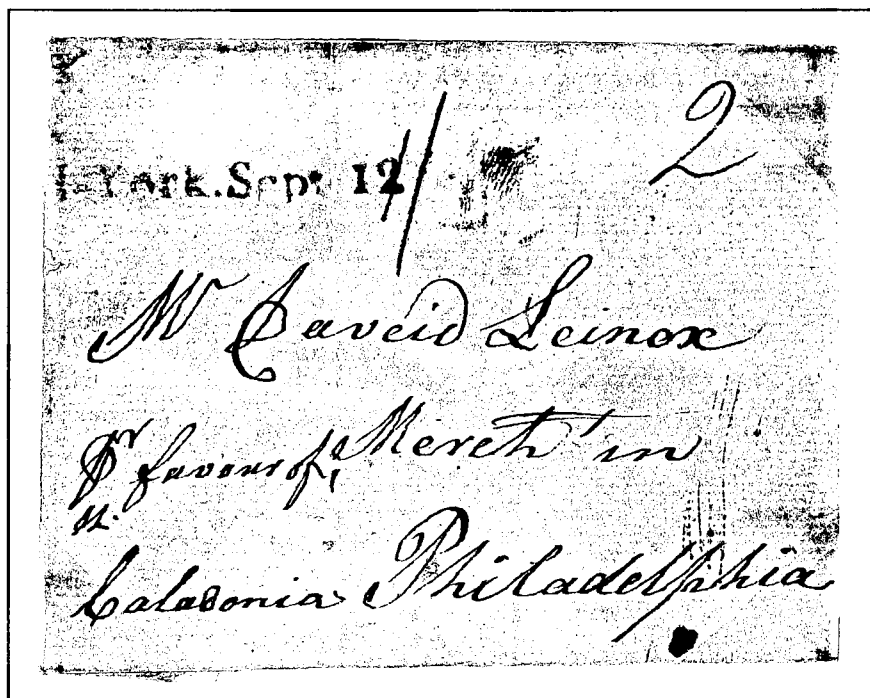 York. Sept 12
2
Mr Daveid Leinox
Pr favour of, Mercht in
Caladonia Philadelphia